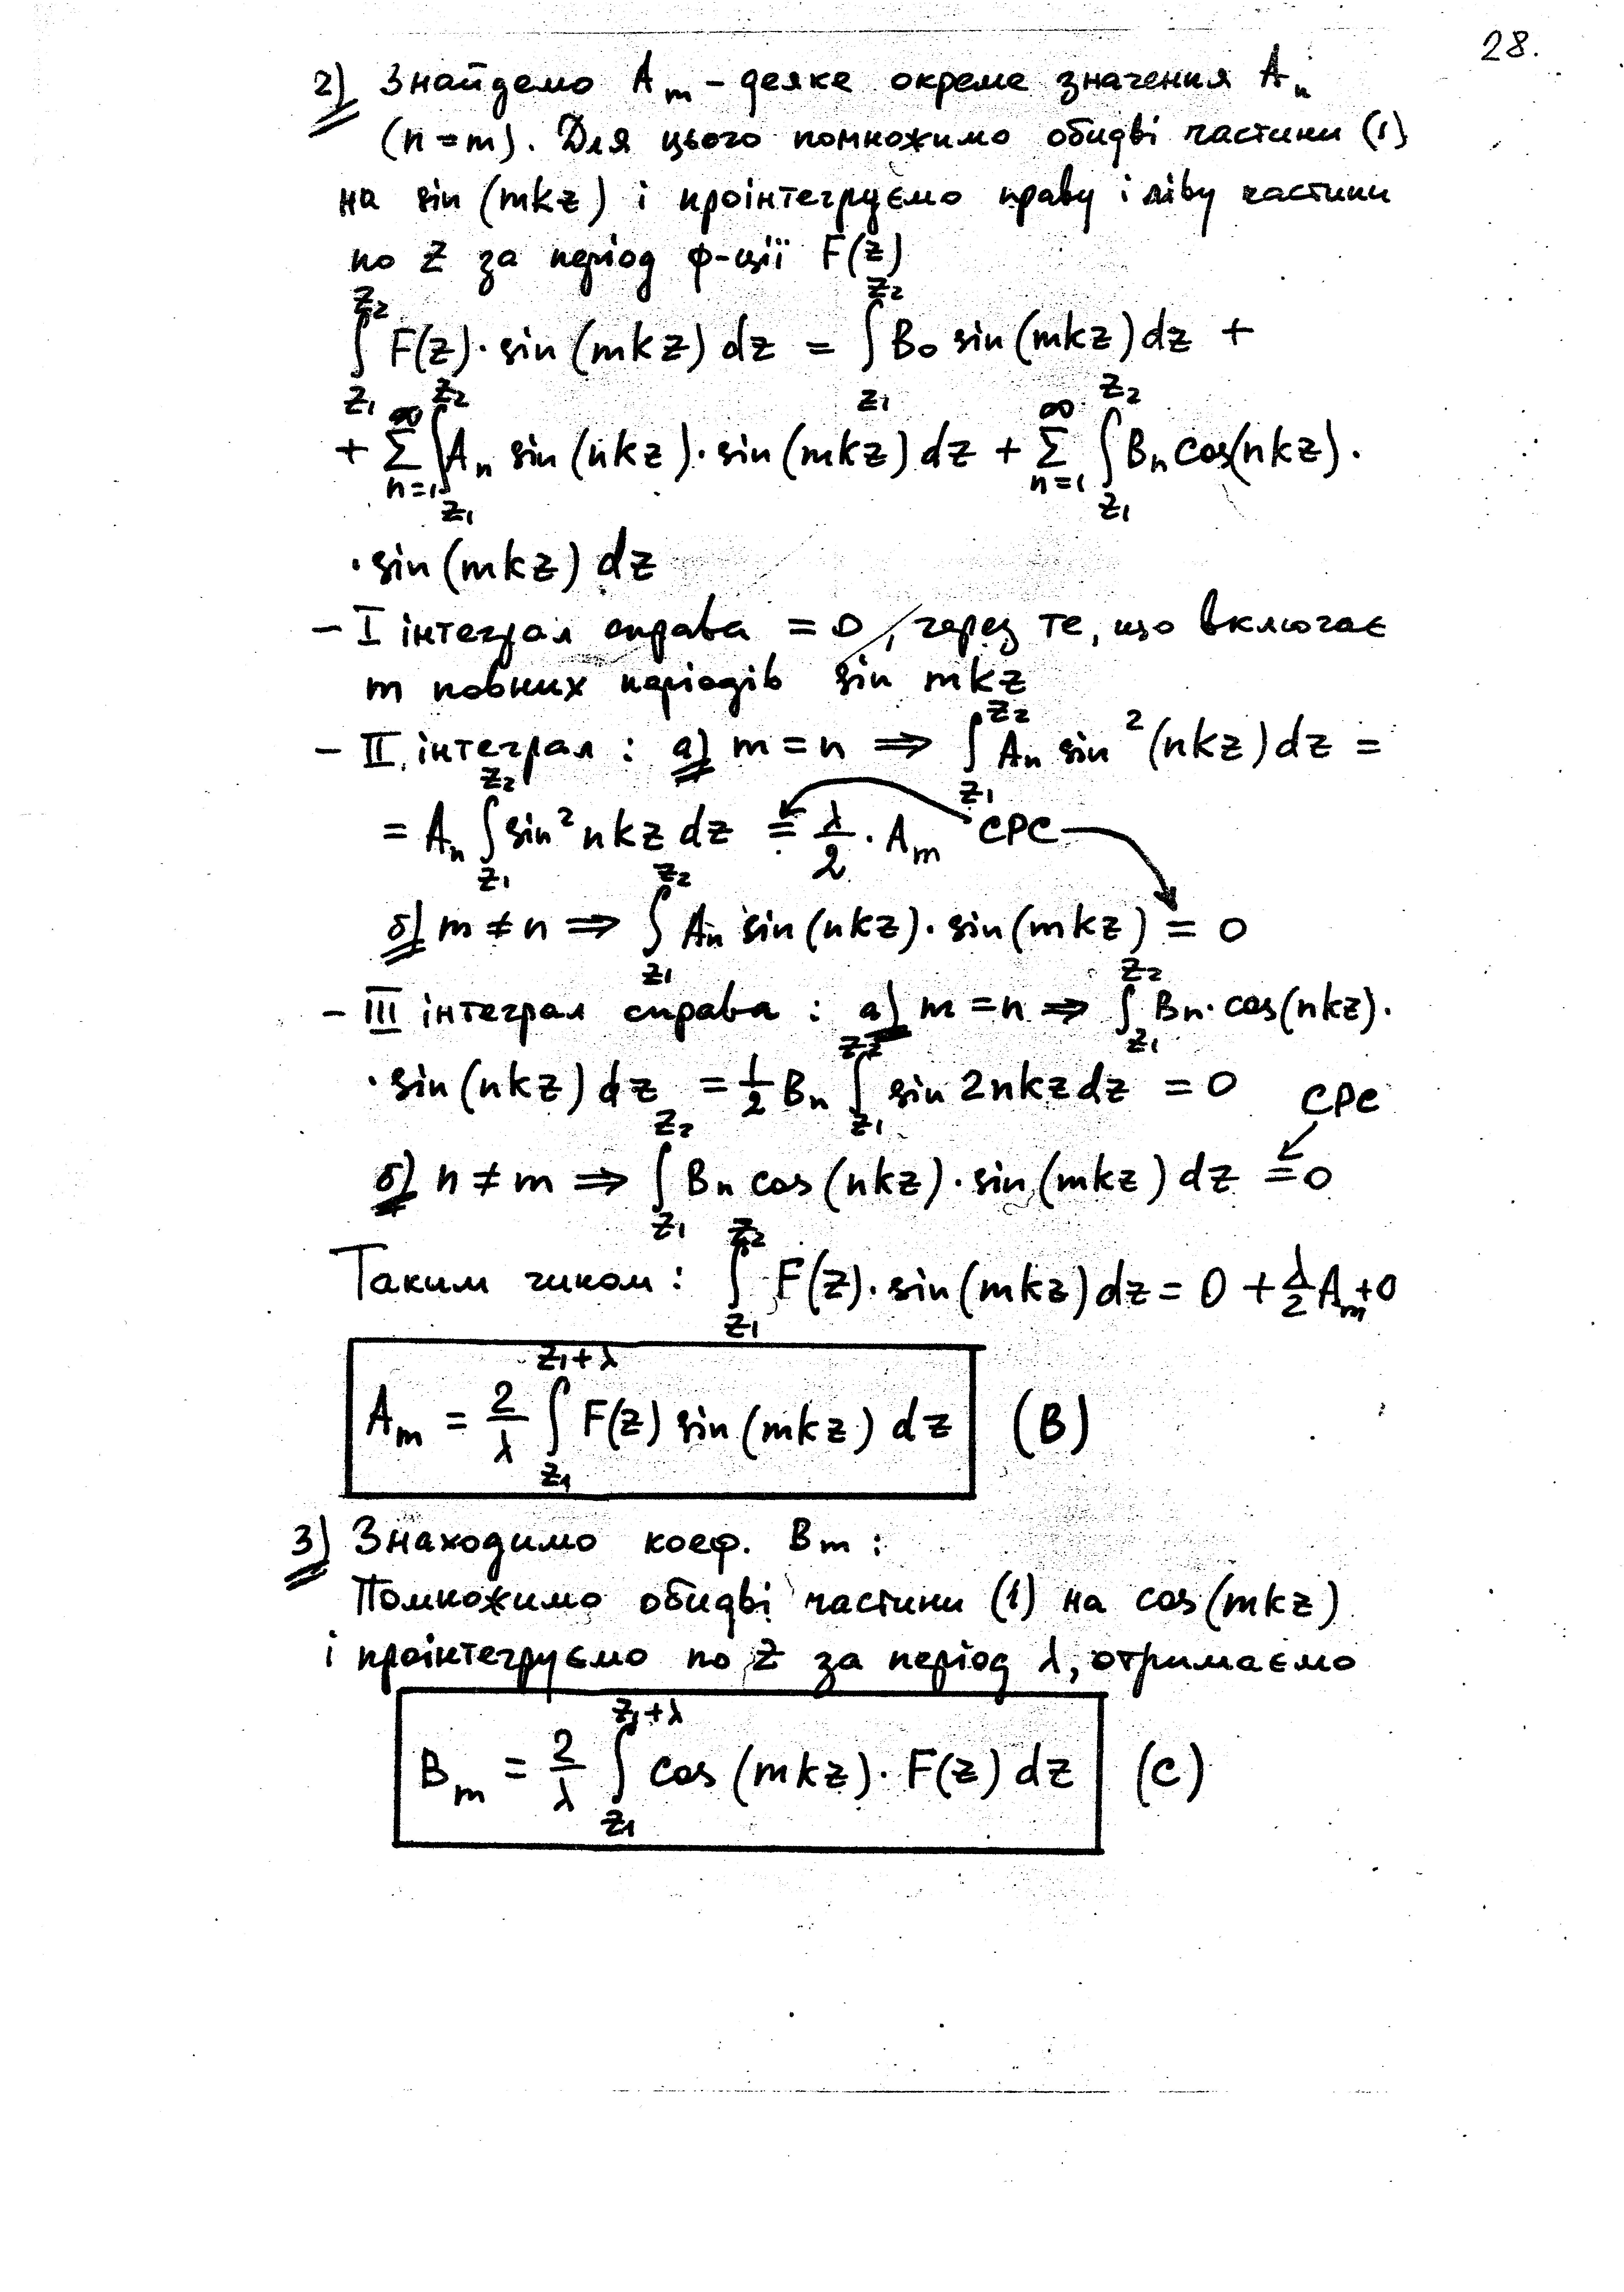 28.
2) Знайдемо Aₘ – деяке окреме значення Aₙ
(n = m). Для цього помножимо обидві частини (1)
на sin (mkz) і проінтегруємо праву і ліву частини
по z за період ф-ції F(z)
∫_{z₁}^{z₂} F(z)·sin (mkz) dz = ∫_{z₁}^{z₂} B₀ sin (mkz) dz +
+ Σ_{n=1}^{∞} ∫_{z₁}^{z₂} Aₙ sin (nkz)·sin (mkz) dz + Σ_{n=1}^{∞} ∫_{z₁}^{z₂} Bₙ cos(nkz)·
·sin (mkz) dz
– I інтеграл справа = 0, через те, що включає
m повних періодів sin mkz
– II інтеграл : а) m = n ⇒ ∫_{z₁}^{z₂} Aₙ sin² (nkz) dz =
= Aₙ ∫_{z₁}^{z₂} sin² nkz dz = λ/2 · Aₘ СРС
б) m ≠ n ⇒ ∫_{z₁}^{z₂} Aₙ sin (nkz)·sin (mkz) = 0
– III інтеграл справа : а) m = n ⇒ ∫_{z₁}^{z₂} Bₙ·cos(nkz)·
·sin (nkz) dz = 1/2 Bₙ ∫_{z₁}^{z₂} sin 2nkz dz = 0 СРС
б) n ≠ m ⇒ ∫_{z₁}^{z₂} Bₙ cos (nkz)·sin (mkz) dz = 0
Таким чином: ∫_{z₁}^{z₂} F(z)·sin (mkz) dz = 0 + λ/2 Aₘ + 0
Aₘ = 2/λ ∫_{z₁}^{z₁+λ} F(z) sin (mkz) dz (B)
3) Знаходимо коеф. Bₘ :
Помножимо обидві частини (1) на cos (mkz)
і проінтегруємо по z за період λ, отримаємо
Bₘ = 2/λ ∫_{z₁}^{z₁+λ} cos (mkz)· F(z) dz (C)